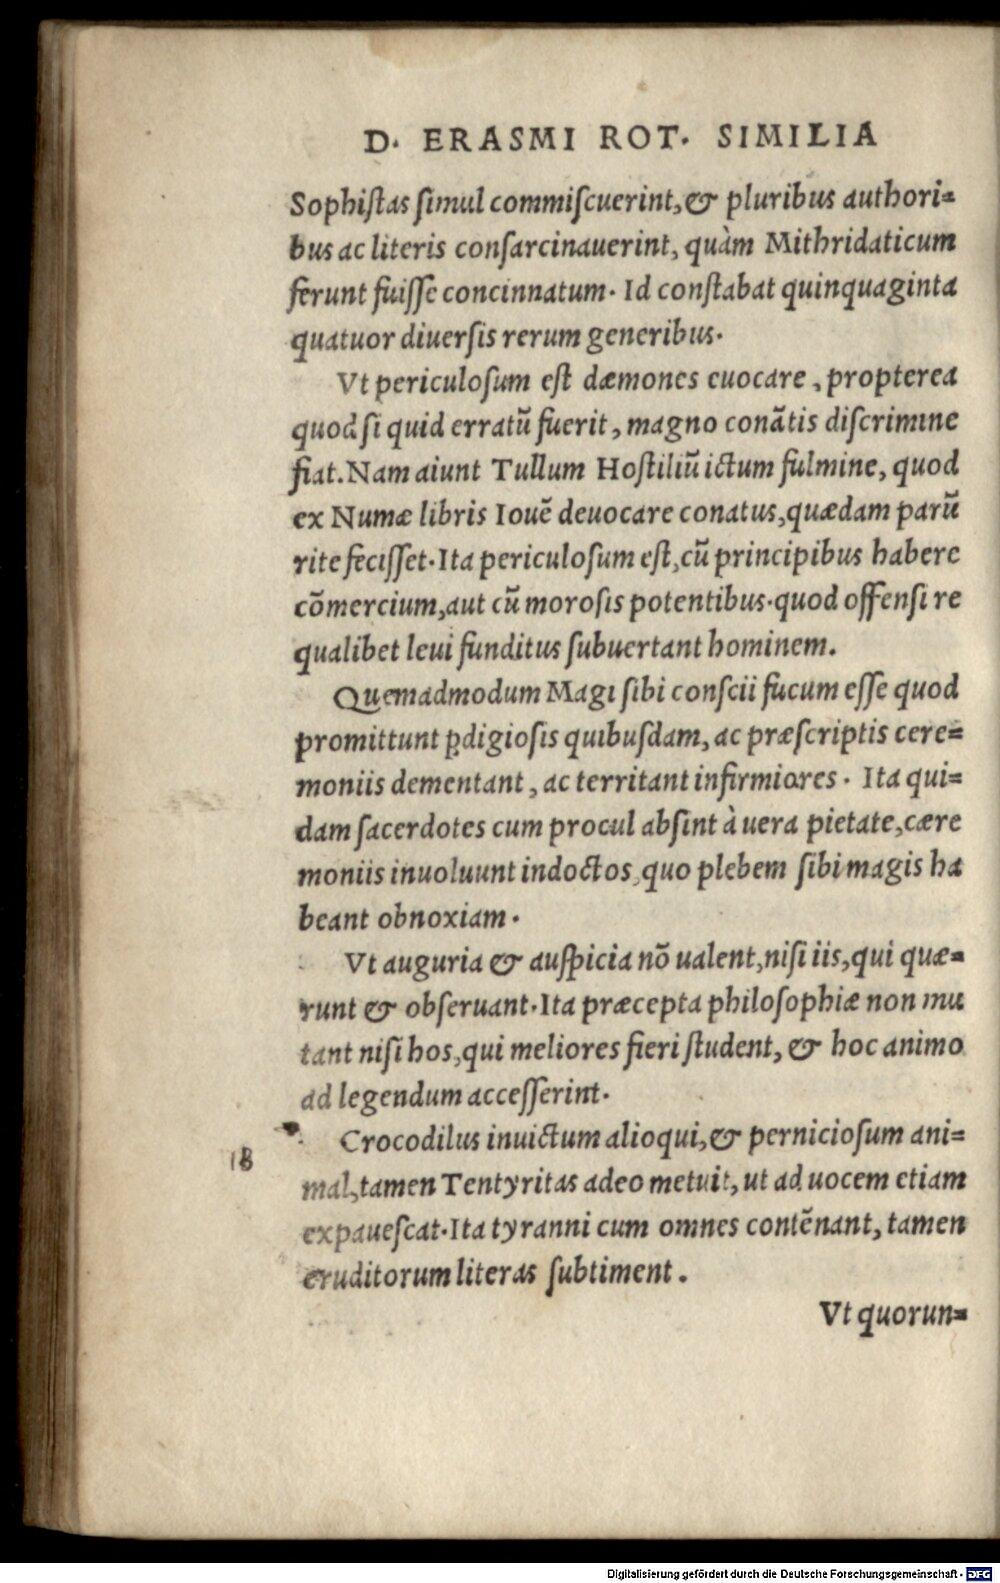 D. ERASMI ROT. SIMILIA
Sophiſtas ſimul commiſcuerint, & pluribus authori=
bus ac literis conſarcinauerint, quàm Mithridaticum
ferunt fuiſſe concinnatum. Id conſtabat quinquaginta
quatuor diuerſis rerum generibus.
Vt periculoſum eſt dæmones euocare, propterea
quod ſi quid erratū fuerit, magno conãtis diſcrimine
fiat. Nam aiunt Tullum Hoſtiliū ictum fulmine, quod
ex Numæ libris Iouē deuocare conatus, quædam parū
rite feciſſet. Ita periculoſum eſt, cū principibus habere
cõmercium, aut cū moroſis potentibus. quod offenſi re
qualibet leui funditus ſubuertant hominem.
Quemadmodum Magi ſibi conſcii fucum eſſe quod
promittunt ꝓdigioſis quibuſdam, ac præſcriptis cere=
moniis dementant, ac territant infirmiores. Ita qui=
dam ſacerdotes cum procul abſint à uera pietate, cære
moniis inuoluunt indoctos, quo plebem ſibi magis ha
beant obnoxiam.
Vt auguria & auſpicia nõ ualent, niſi iis, qui quæ=
runt & obſeruant. Ita præcepta philoſophiæ non mu
tant niſi hos, qui meliores fieri ſtudent, & hoc animo
ad legendum acceſſerint.
Crocodilus inuictum alioqui, & pernicioſum ani=
18
mal, tamen Tentyritas adeo metuit, ut ad uocem etiam
expaueſcat. Ita tyranni cum omnes contēnant, tamen
eruditorum literas ſubtiment.
Vt quorun=
Digitalisierung gefördert durch die Deutsche Forschungsgemeinschaft - DFG